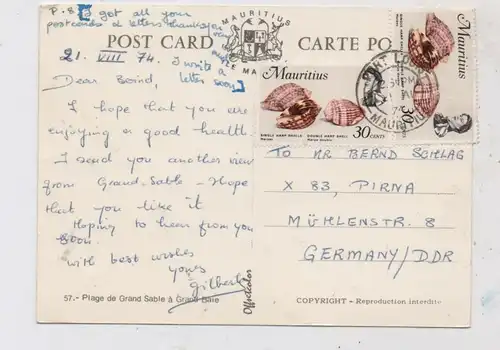 P.S [I got all your
postcards & letters thank you
very much
I write a
letter soon]
POST CARD
CARTE PO
MAURITIUS
21. VIII 74.
Dear Bernd,
I hope that you are
enjoying a good health.
I send you another view
from Grand-Sable - Hope
that you like it
Hoping to hear from you
soon.
with best wishes
yours
Gilbert
57.- Plage de Grand Sable à Grand Baie
Offsetcolor
Mauritius
SINGLE HARP SHELLS
DOUBLE HARP SHELL
30 CENTS
Mauritius
30
MAURITIUS
TO MR BERND SCHLAG
X 83, PIRNA
MÜHLENSTR. 8
GERMANY/DDR
COPYRIGHT - Reproduction interdite